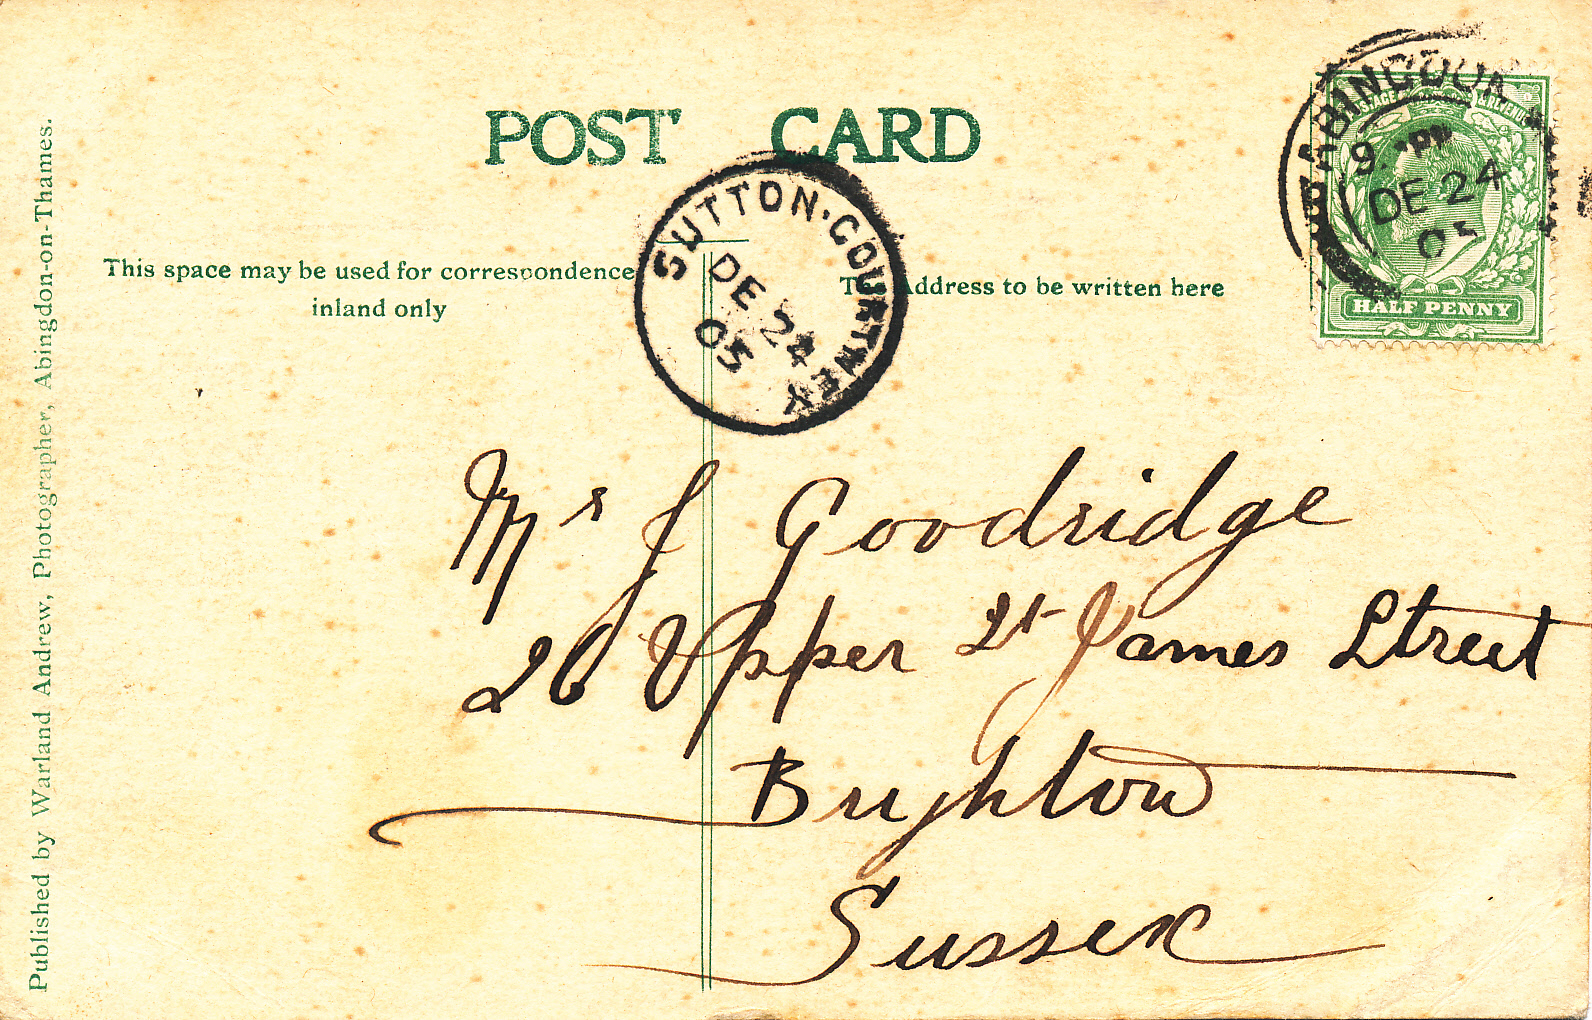 POST CARD
This space may be used for correspondence
inland only
The Address to be written here
SUTTON·COURTNEY
DE 24
05
ABINGDON
9. PM
DE 24
05
POSTAGE & REVENUE
HALF PENNY
Mr J Goodridge
26 Upper St James Street
Brighton
Sussex
Published by Warland Andrew, Photographer, Abingdon-on-Thames.